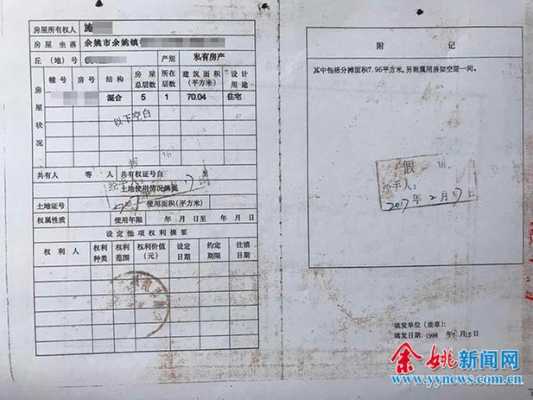 房屋所有权人 施
房屋坐落 余姚市余姚镇
丘(地)号 产别 私有房产
幢号 房号 结构 房屋总层数 所在层数 建筑面积(平方米) 设计用途
房屋状况
混合 5 1 70.04 住宅
以下空白
共有人 等 人 共有权证号自 至
土地使用情况摘要
土地证号 使用面积(平方米)
权属性质 使用年限 年 月 日至 年 月 日
设定他项权利摘要
权利人 权利种类 权利范围 权利价值(元) 设定日期 约定期限 注销日期
附 记
其中包括分摊面积7.96平方米,另附属用房架空层一间。
假
经手人:
2017年2月17日
填发单位(盖章):
填发日期:1998年 月15日
余姚新闻网
www.yynews.com.cn